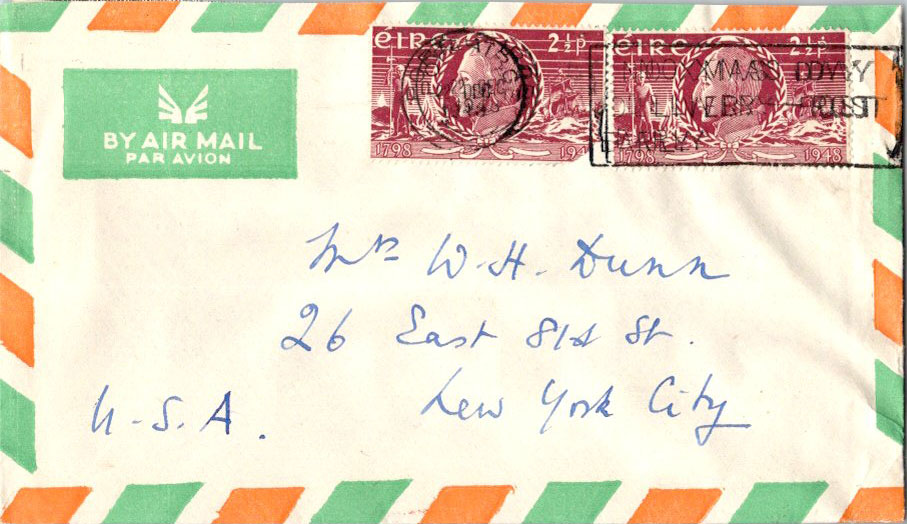 éIRe 2½p éIRe 2½p
1798 194 1798 1948
BY AIR MAIL
PAR AVION
Mrs W. H. Dunn
26 East 81st St.
New York City
U.S.A.